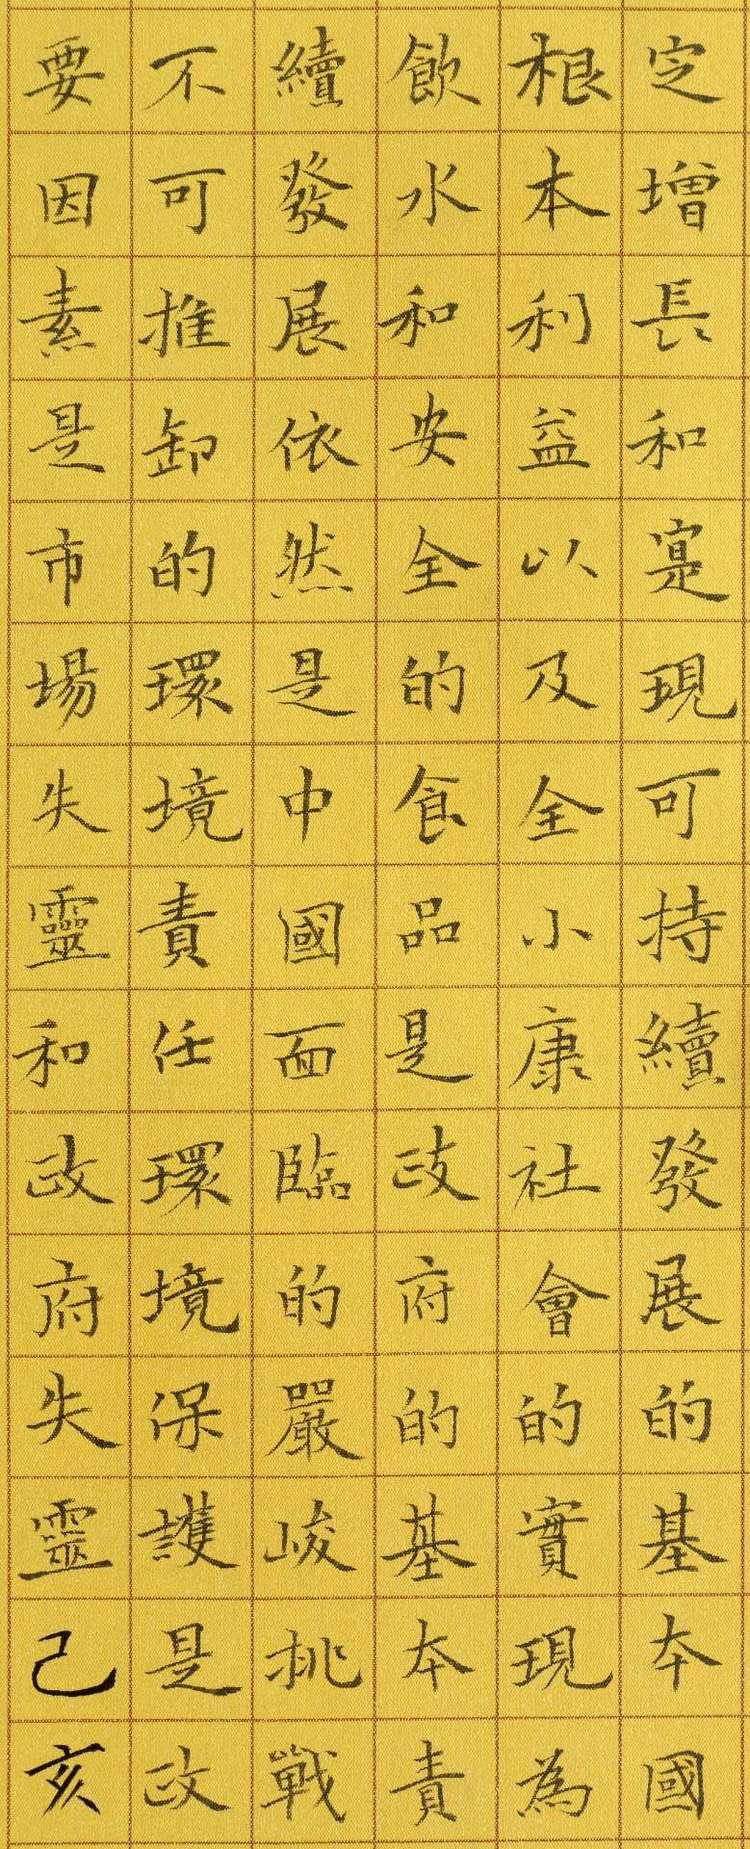 定增長和寔現可持續發展的基本國
根本利益以及全小康社會的實現為
飲水和安全的食品是政府的基本責
續發展依然是中國面臨的嚴峻挑戰
不可推卸的環境責任環境保護是政
要因素是市場失靈和政府失靈己亥